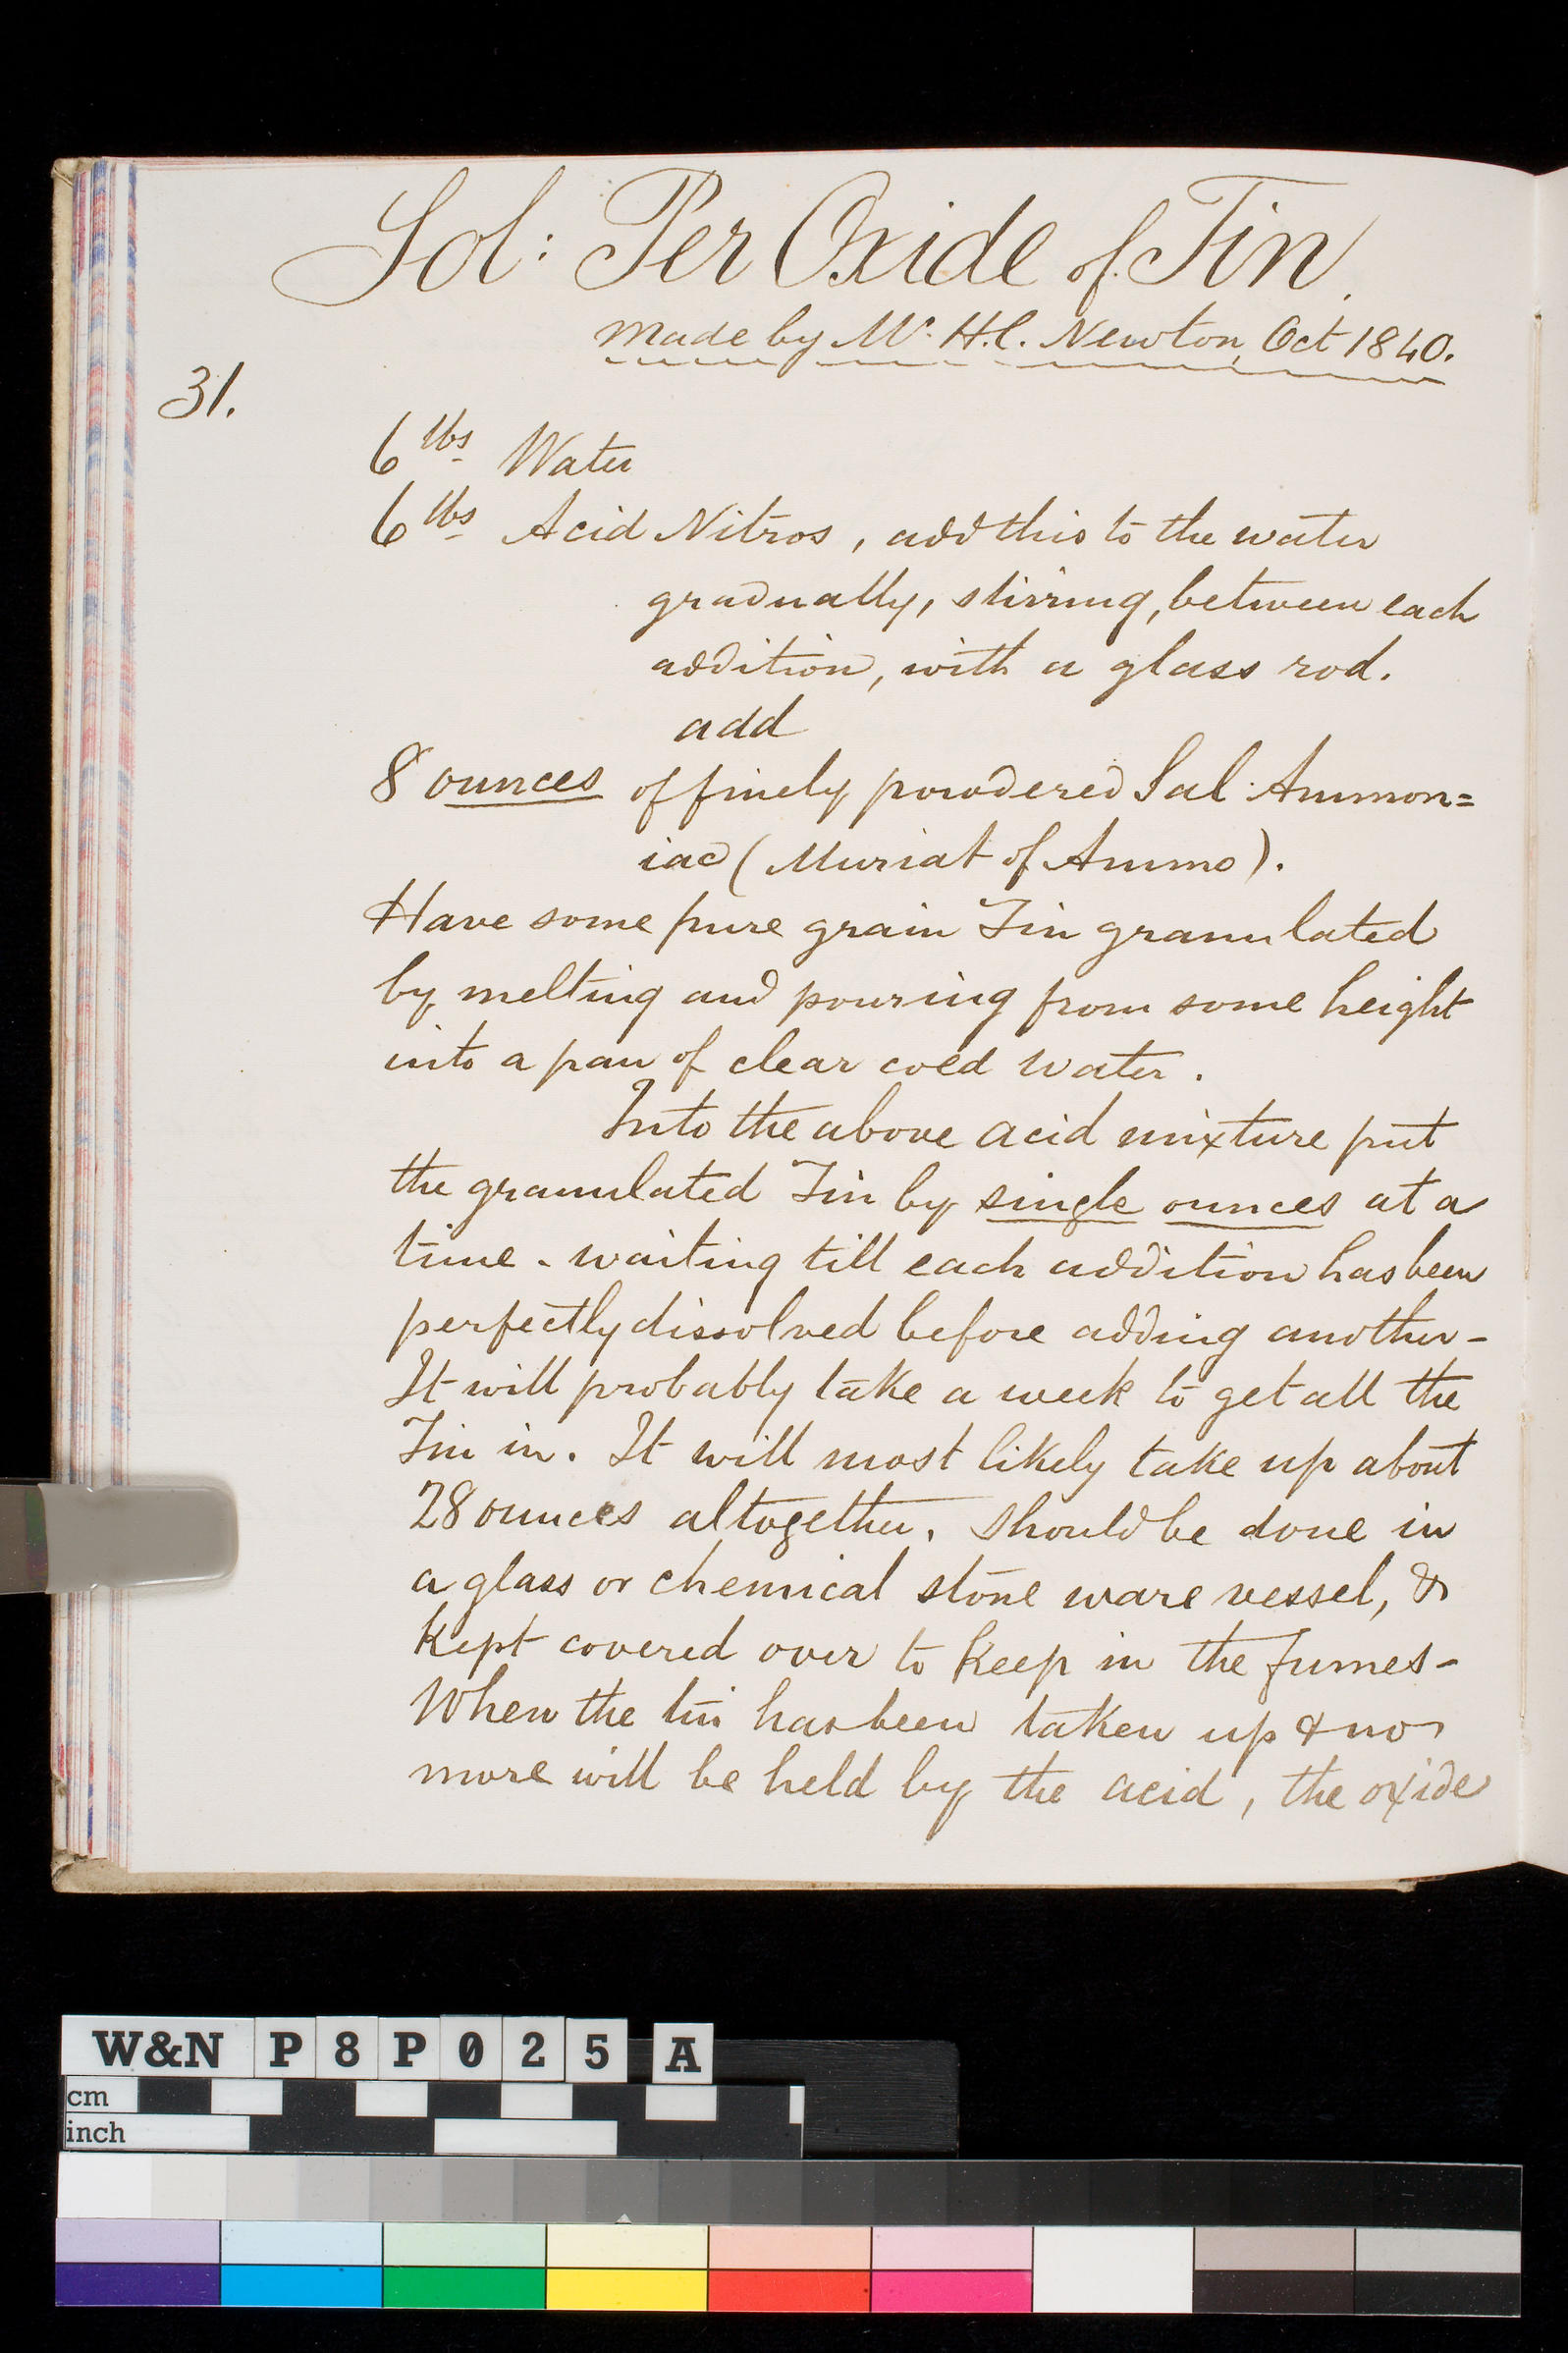 Sol: Per Oxide of Tin.
made by Mr. H.C. Newton, Oct 1840.
31.
6 lbs Water
6 lbs Acid Nitros, add this to the water
gradually, stirring, between each
addition, with a glass rod.
add
8 ounces of finely powdered Sal Ammon=
iac (Muriat of Ammo).
Have some pure grain Tin granulated
by melting and pouring from some height
into a pan of clear cold water.
Into the above acid mixture put
the granulated Tin by single ounces at a
time - waiting till each addition has been
perfectly dissolved before adding another -
It will probably take a week to get all the
Tin in. It will most likely take up about
28 ounces altogether. Should be done in
a glass or chemical stone ware vessel, &
kept covered over to keep in the fumes -
When the tin has been taken up & no
more will be held by the acid, the oxide
W&N P8P025 A
cm
inch